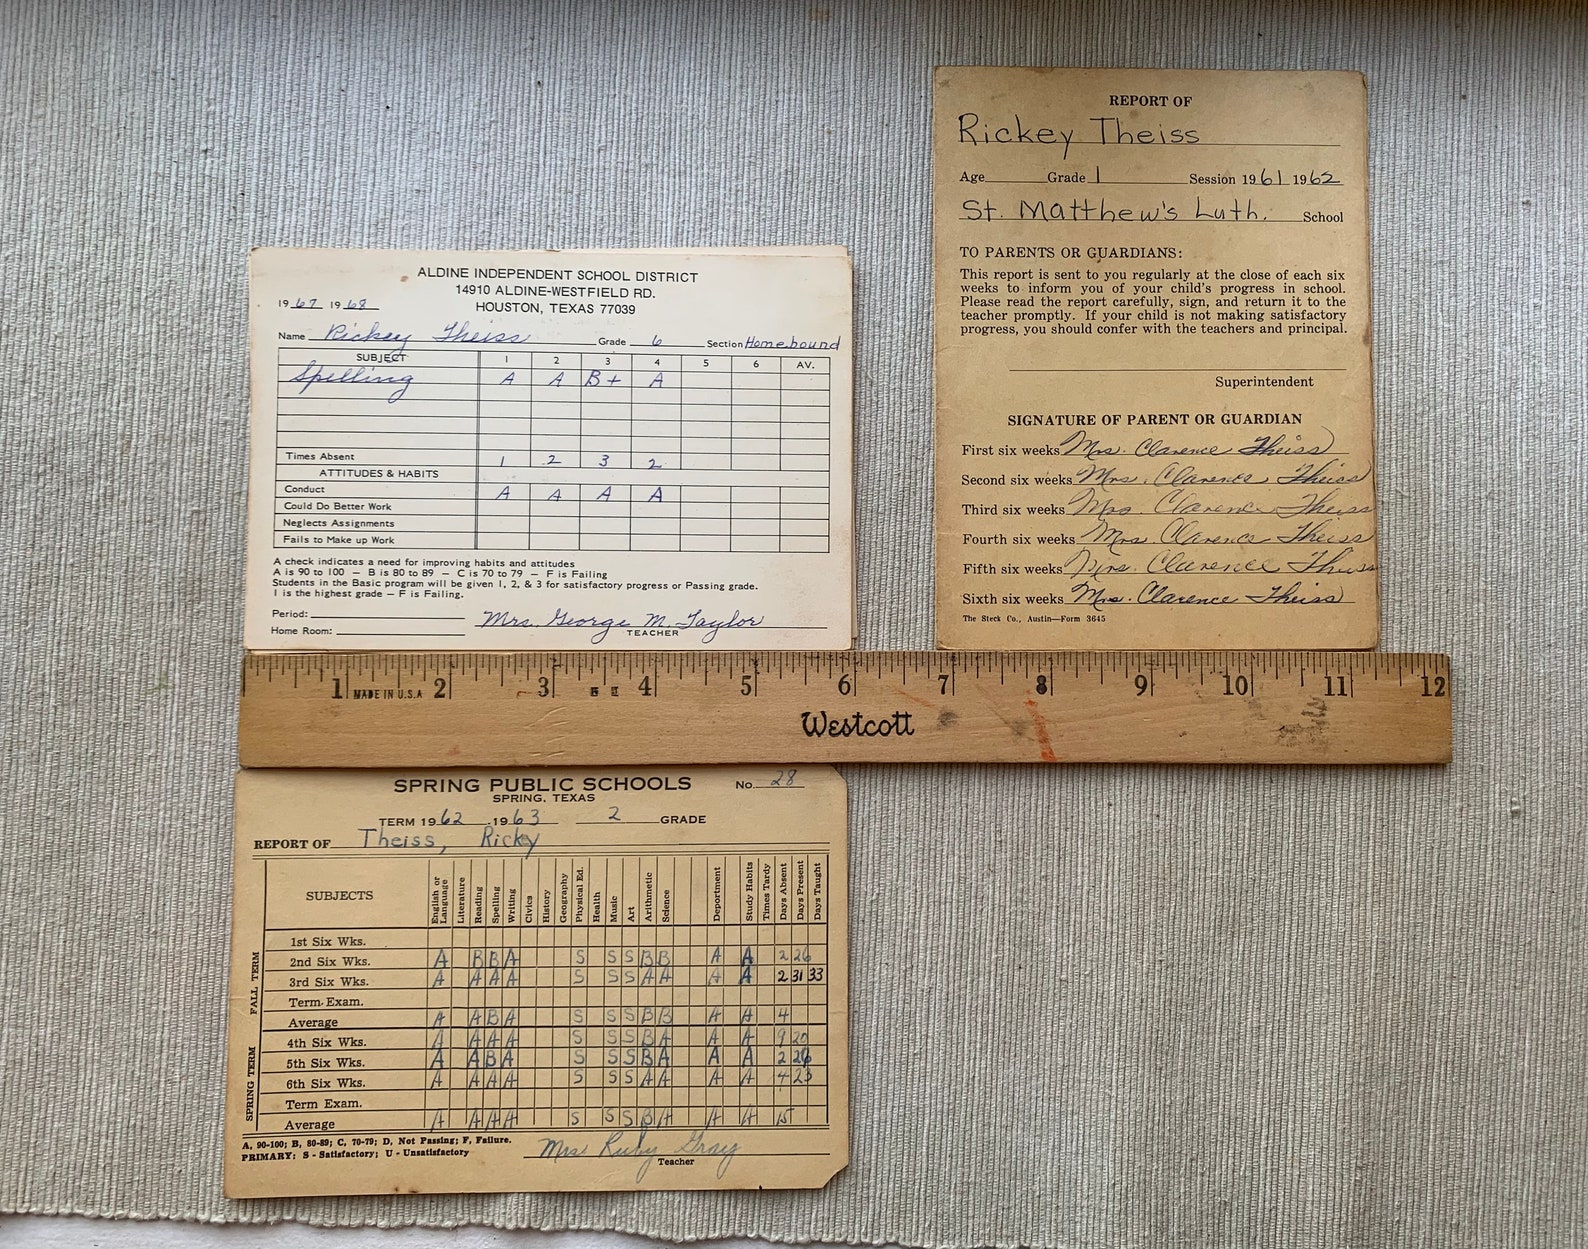 REPORT OF
Rickey Theiss
Age Grade 1 Session 1961 1962
St. Matthew's Luth. School
TO PARENTS OR GUARDIANS:
This report is sent to you regularly at the close of each six
weeks to inform you of your child's progress in school.
Please read the report carefully, sign, and return it to the
teacher promptly. If your child is not making satisfactory
progress, you should confer with the teachers and principal.
Superintendent
SIGNATURE OF PARENT OR GUARDIAN
First six weeks Mrs. Clarence Theiss
Second six weeks Mrs. Clarence Theiss
Third six weeks Mrs. Clarence Theiss
Fourth six weeks Mrs. Clarence Theiss
Fifth six weeks Mrs. Clarence Theiss
Sixth six weeks Mrs. Clarence Theiss
The Steck Co., Austin—Form 3645
ALDINE INDEPENDENT SCHOOL DISTRICT
14910 ALDINE-WESTFIELD RD.
HOUSTON, TEXAS 77039
1967 1968
Name Rickey Theiss Grade 6 Section Homebound
SUBJECT 1 2 3 4 5 6 AV.
Spelling A A B+ A
Times Absent 1 2 3 2
ATTITUDES & HABITS
Conduct A A A A
Could Do Better Work
Neglects Assignments
Fails to Make up Work
A check indicates a need for improving habits and attitudes
A is 90 to 100 — B is 80 to 89 — C is 70 to 79 — F is Failing
Students in the Basic program will be given 1, 2, & 3 for satisfactory progress or Passing grade.
1 is the highest grade — F is Failing.
Period:
Mrs. George M. Taylor
Home Room: TEACHER
1 2 3 4 5 6 7 8 9 10 11 12
MADE IN U.S.A
Westcott
SPRING PUBLIC SCHOOLS No. 28
SPRING, TEXAS
TERM 1962 1963 2 GRADE
REPORT OF Theiss, Ricky
SUBJECTS English or Language Literature Reading Spelling Writing Civics History Geography Physical Ed. Health Music Art Arithmetic Science Deportment Study Habits Times Tardy Days Absent Days Present Days Taught
FALL TERM
1st Six Wks.
2nd Six Wks. A B B A S S S B B A A 2 26
3rd Six Wks. A A A A S S S A A A A 2 31 33
Term Exam.
Average A A B A S S S B B A A 4
SPRING TERM
4th Six Wks. A A A A S S S B A A A 9 20
5th Six Wks. A A B A S S S B A A A 2 26
6th Six Wks. A A A A S S S A A A A 4 23
Term Exam.
Average A A A A S S S B A A A 15
A, 90-100; B, 80-89; C, 70-79; D, Not Passing; F, Failure.
PRIMARY: S - Satisfactory; U - Unsatisfactory
Mrs Ruby Gray
Teacher